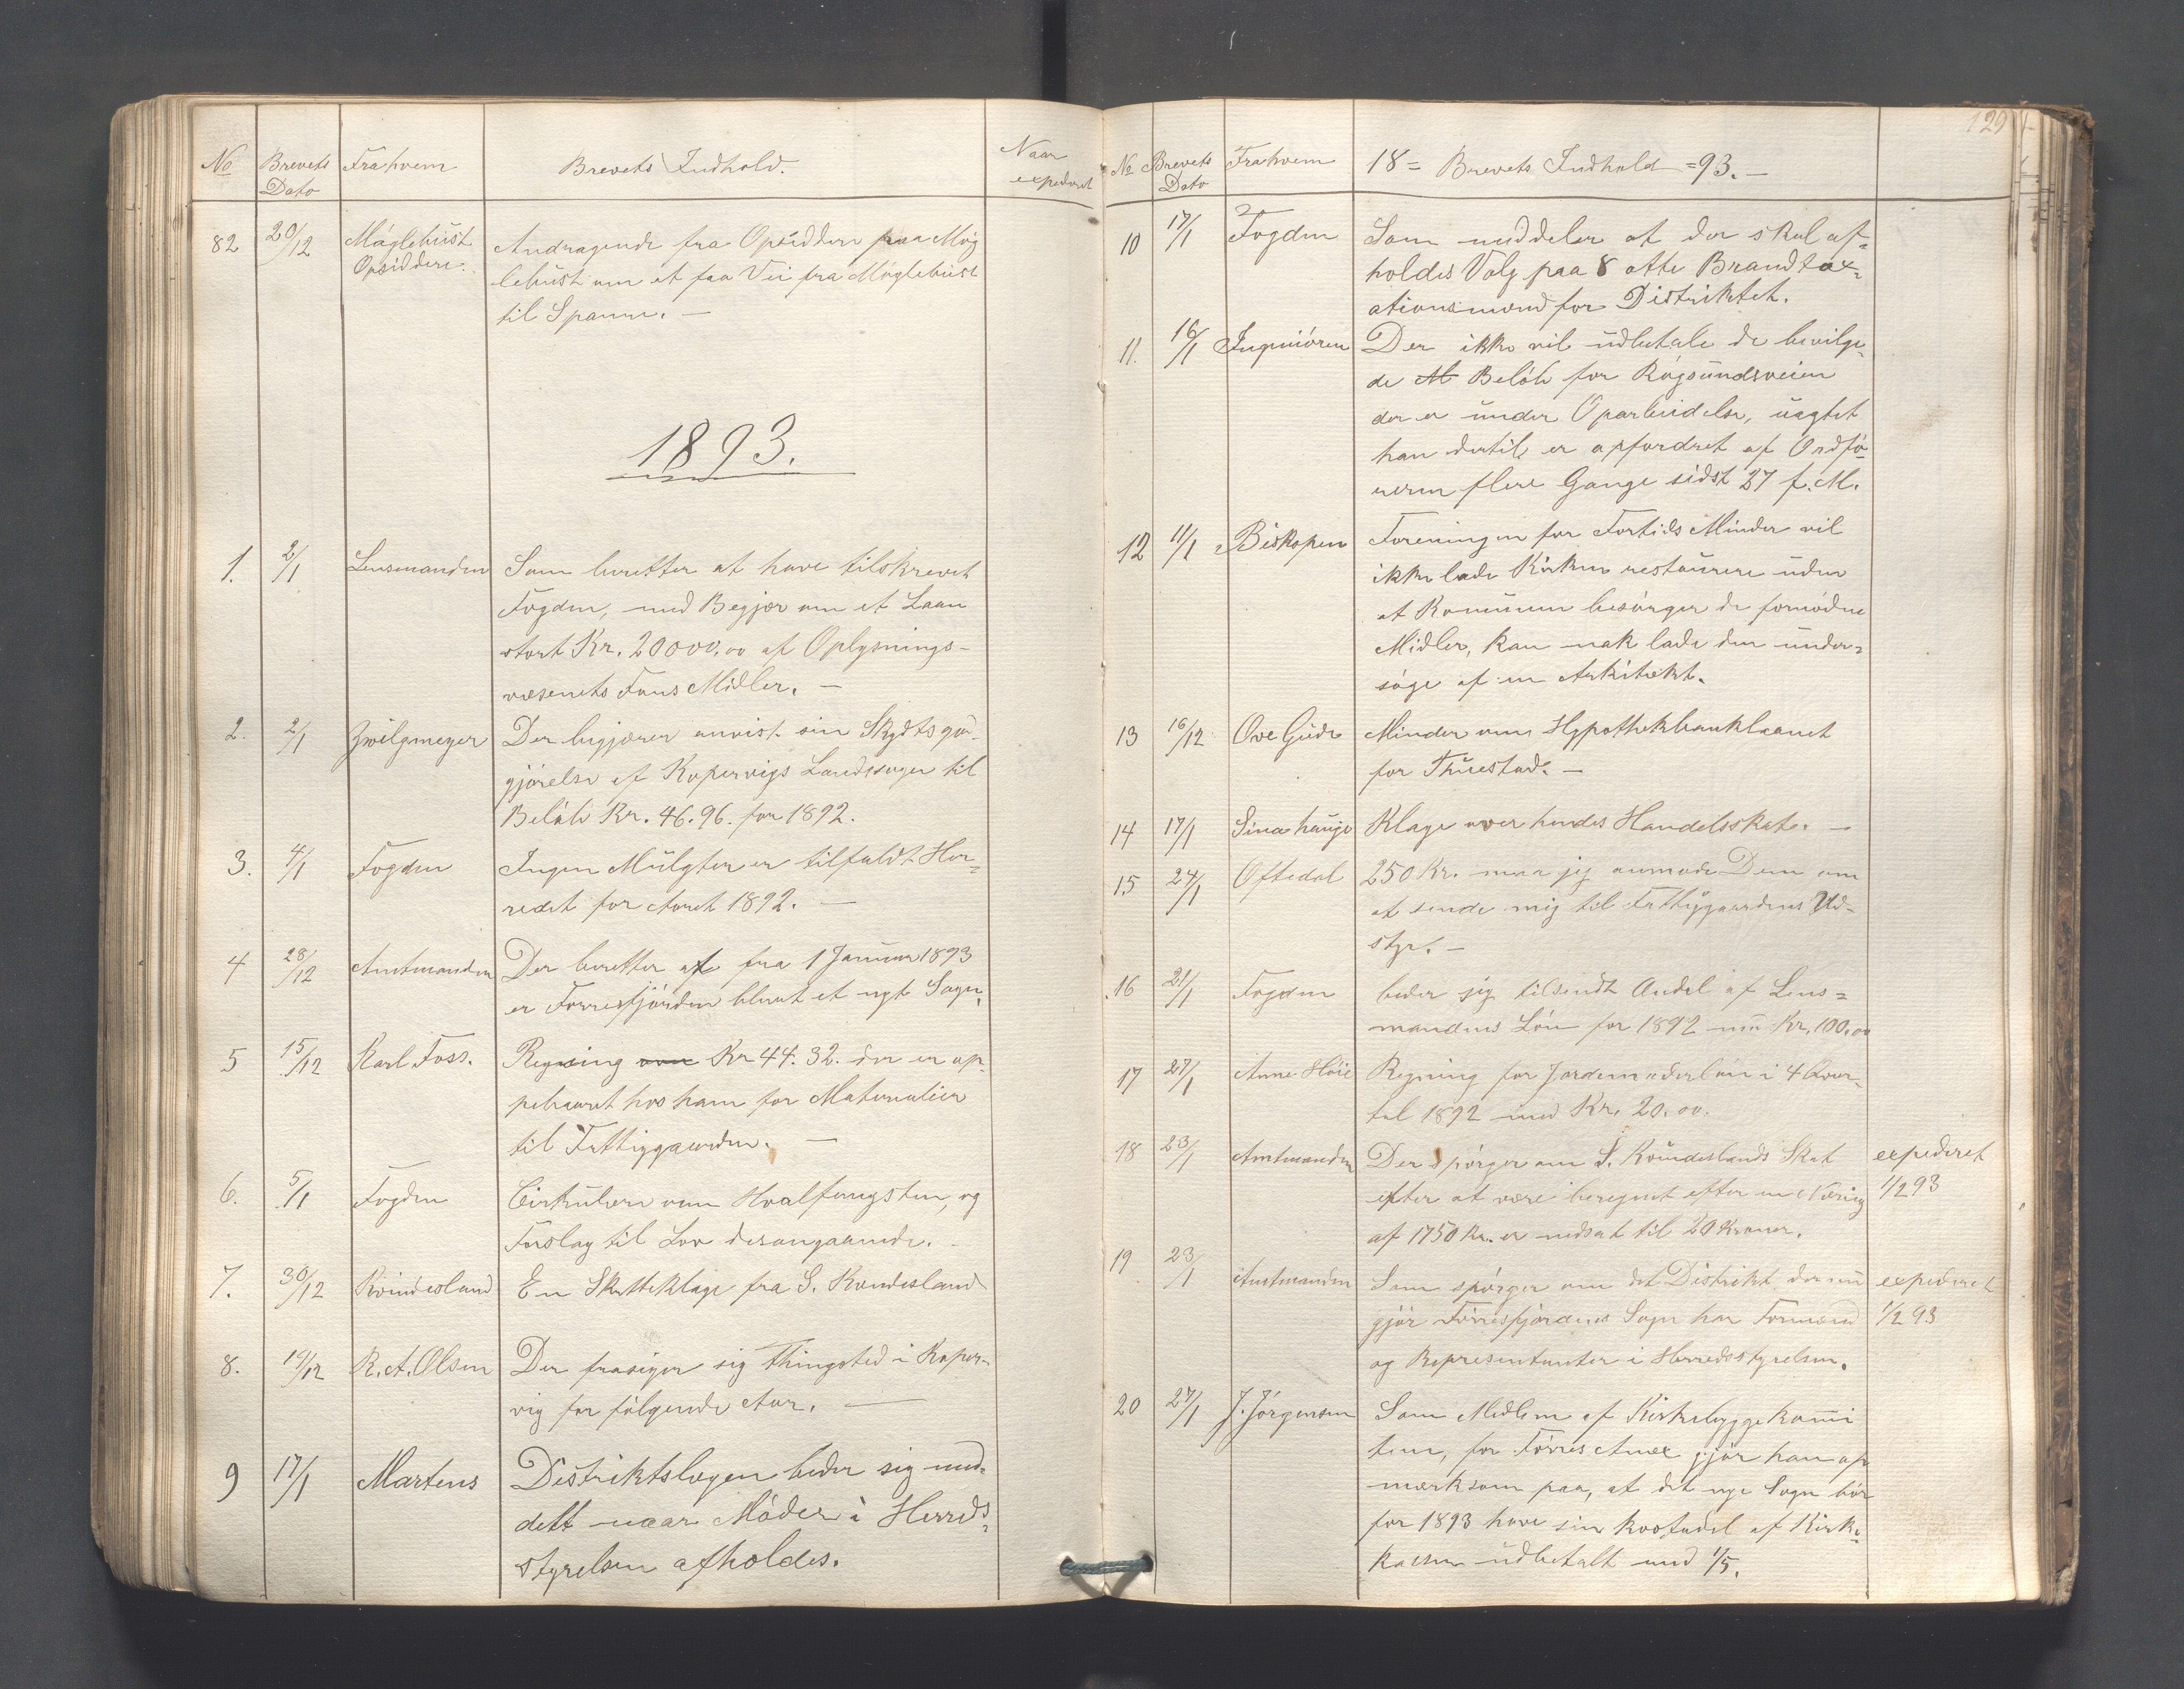 No Brevets Dato Fra hvem Brevets Indhold. Naar expederet
82 20/12 Møglebust Opsiddere Andragende fra Opsiddere paa Møg
lebust om at faa Vei fra Møglebust
til Spanne. —
1893.
1. 2/1 Lensmanden Som beretter at have tilskrevet
Fogden, med Begjær om et Laan
stort Kr. 20000.00 af Oplysnings-
væsenets Fons Midler. —
2. 2/1 Zwilgmeyer Der begjærer anvist sin Skydtsgod-
gjørelse af Kopervigs Landsogn til
Beløb Kr. 46.96. for 1892.
3. 4/1 Fogden Ingen Mulgter er tilfaldt Her-
redet for Aaret 1892. —
4 28/12 Amtmanden Der beretter at fra 1 Januar 1893
er Førresfjorden blevet et nyt Sogn.
5 15/12 Karl Foss. Regning Kr 44.32. der er op-
pebaaret hos ham for Materialier
til Fattiggaarden. —
6. 5/1 Fogden Cirkulære om Hvalfangsten, og
Forslag til Lov desangaaende. -
7. 30/12 Kvindesland En Skatteklage fra S. Kvindesland
8. 19/12 R. A. Olsen Der frasiger sig Thingsted i Koper-
vig for følgende Aar. —
9 17/1 Martens Distriktslægen beder sig med-
delt naar Møder i Herreds-
styrelsen afholdes.
129
No Brevets Dato Fra hvem 18= Brevets Indhold =93. —
10 17/1 Fogden Som meddeler at der skal af-
holdes Valg paa 8 otte Brandtax-
ationsmænd for Distriktet.
11. 16/1 Ingeniøren Der ikke vil udbetale de bevilge-
de Beløb for Røgsundsveien
der er under Oparbeidelse, uagtet
han dertil er opfordret af Ordfø-
reren flere Gange sidst 27 f. M.
12 11/1 Biskopen Foreningen for Fortids Minder vil
ikke lade Kirken restaurere uden
at Komunen besørger de fornødne
Midler, kan nok lade den under-
søge af en Arkitekt.
13 16/12 Ove Gude Minder om Hypothekbanklaanet
for Thuestad. —
14 17/1 Sina hauge Klage over hendes Handelsskat. —
15 24/1 Oftedal 250 Kr. maa jeg anmode Dem om
at sende mig til Fattiggaardens Ud-
styr. —
16 21/1 Fogden beder sig tilsendt Andel af Lens-
mandens Løn for 1892 med Kr. 100.00
17 27/1 Anne Høie Regning for Jordemoderløn i 4 Qvar-
tal 1892 med Kr. 20.00.
18 23/1 Amtmanden Der spørger om S. Kvindeslands Skat expederet
efter at være beregnet efter en Næring 1/2 93
af 1750 Kr. er nedsat til 20 Kroner.
19 23/1 Amtmanden Som spørger om det Distrikt der ud- expederet
gjør Førresfjordens Sogn har Formænd 1/2 93
og Representanter i Herredsstyrelsen.
20 27/1 J. Jørgensen Som Medlem af Kirkebyggekomi
teen, for Førres Anex gjør han op
mærksom paa, at det nye Sogn bør
for 1893 have sin kvotadel af Kirke-
kassen udbetalt med 1/5.